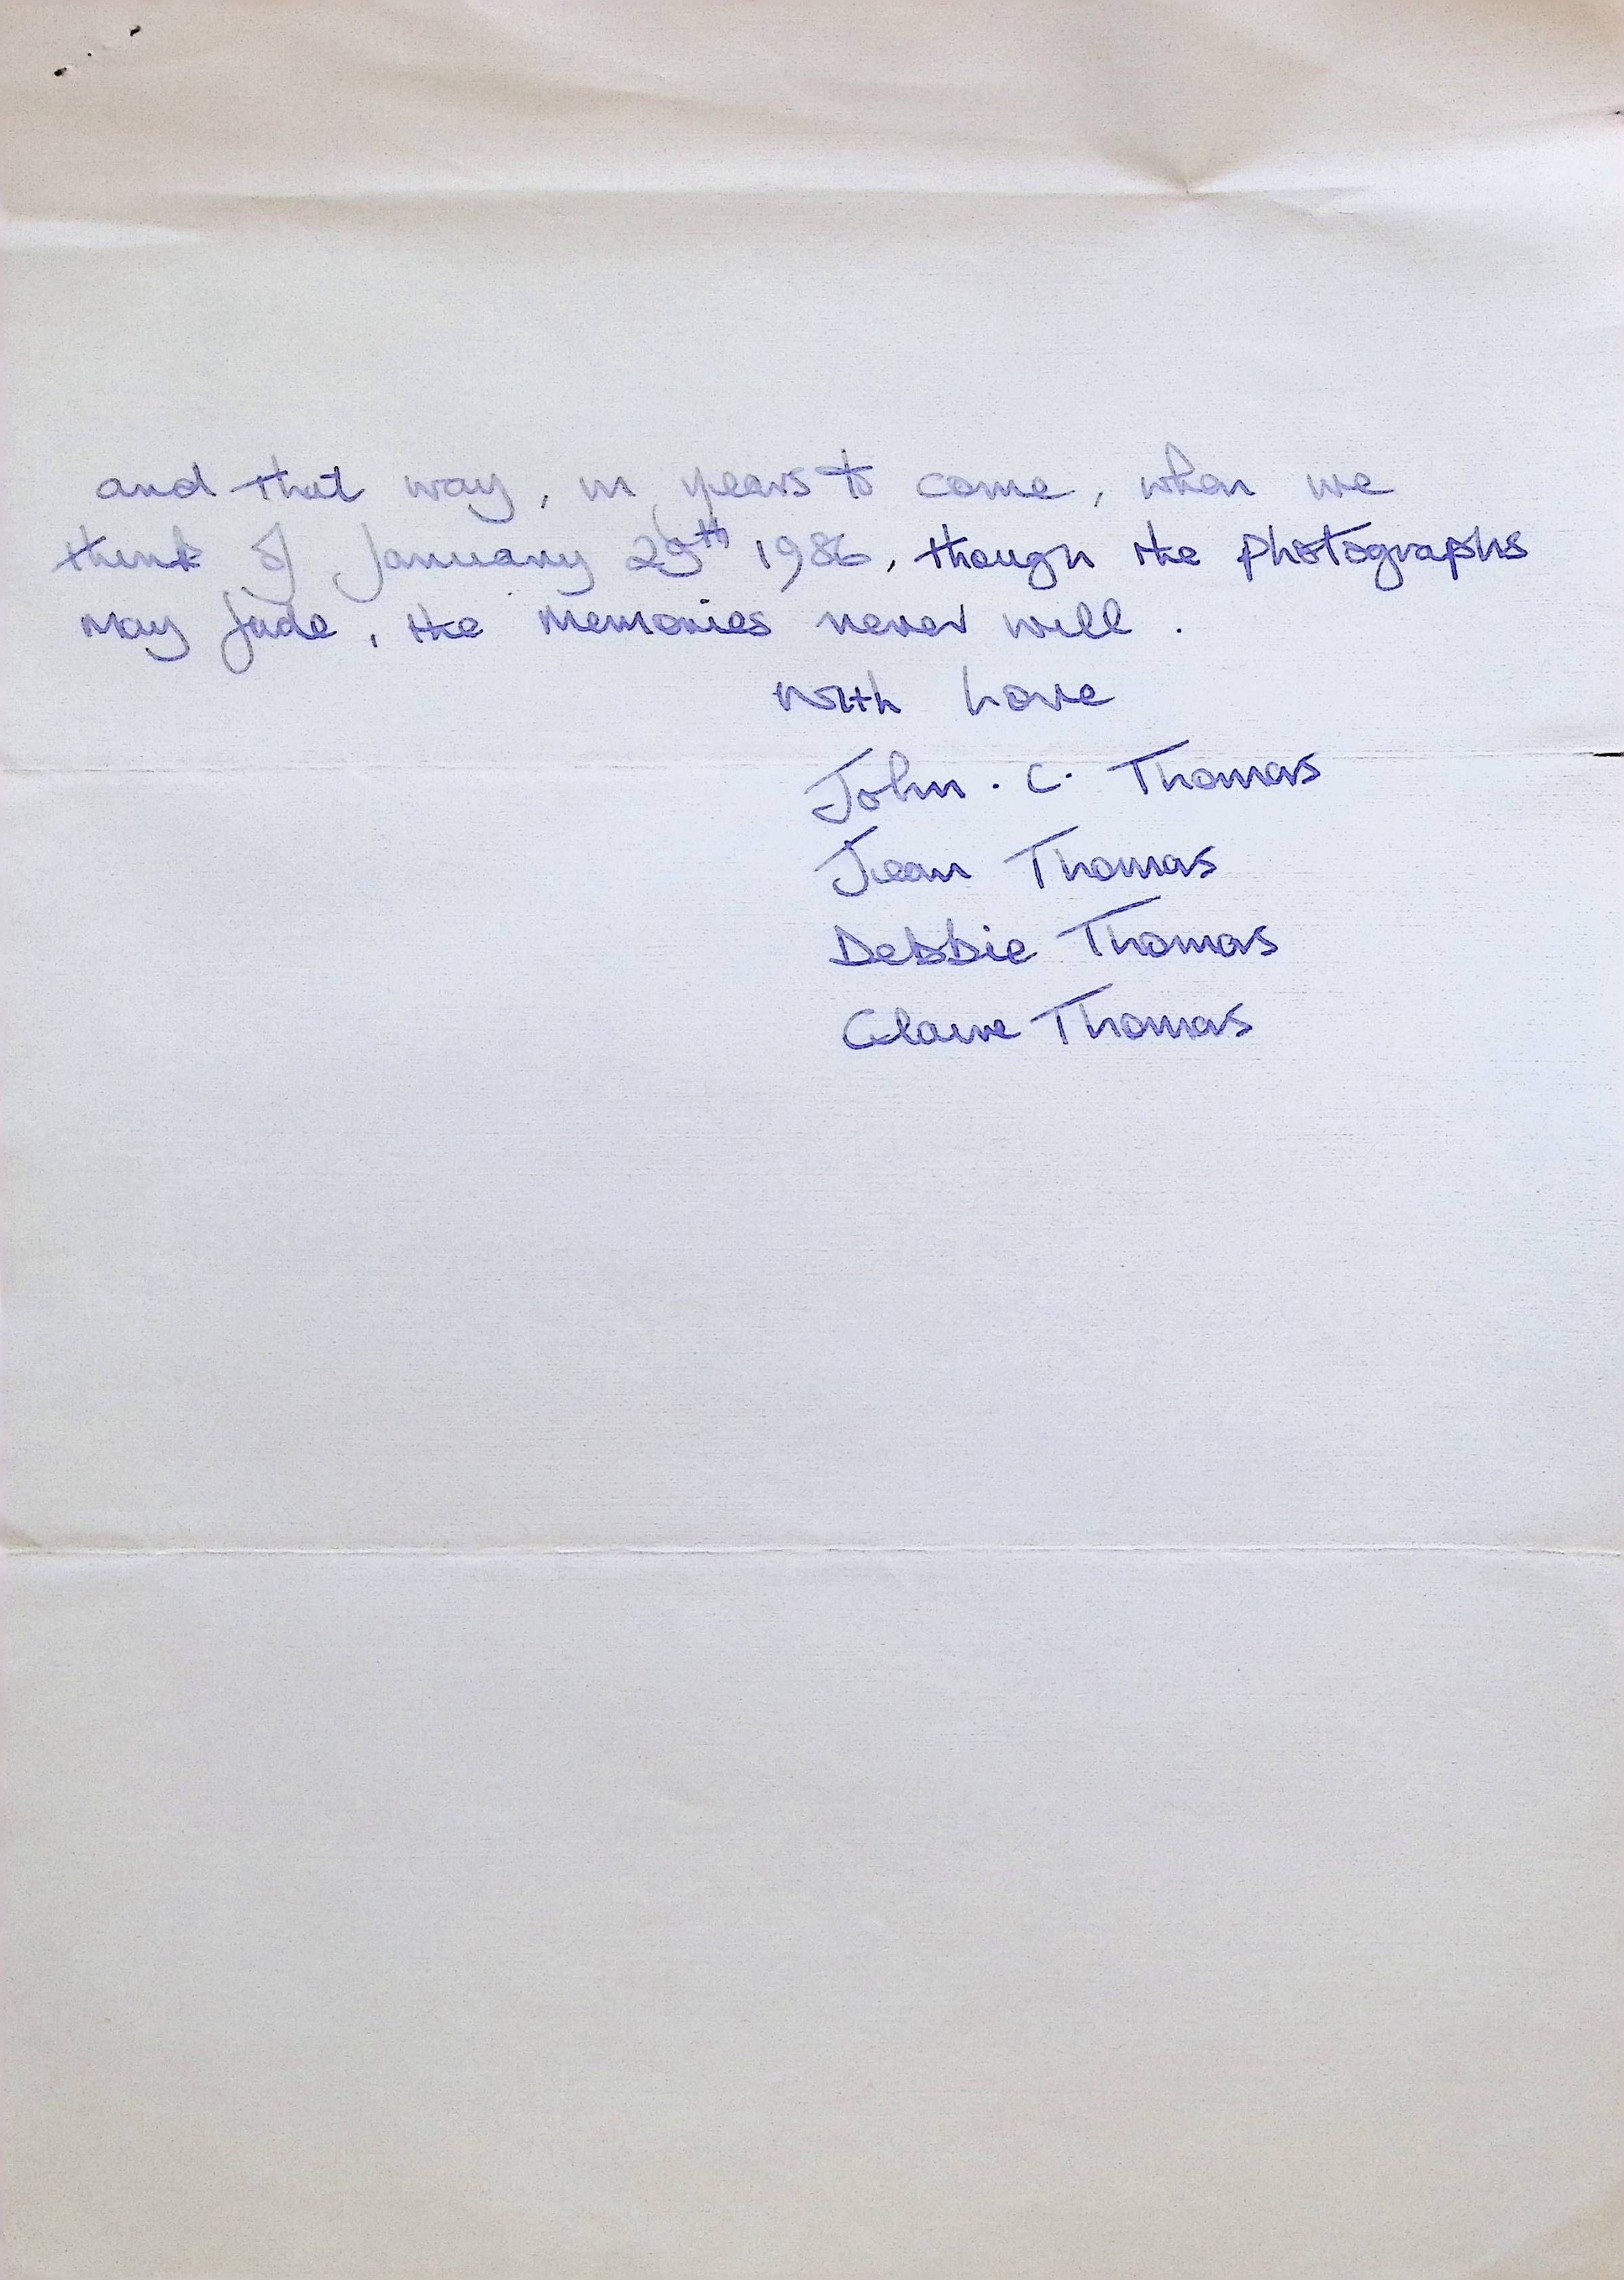 and that way, in years to come, when we
think of January 29th 1986, though the photographs
may fade, the memories never will.
With Love
John. C. Thomas
Jean Thomas
Debbie Thomas
Claire Thomas